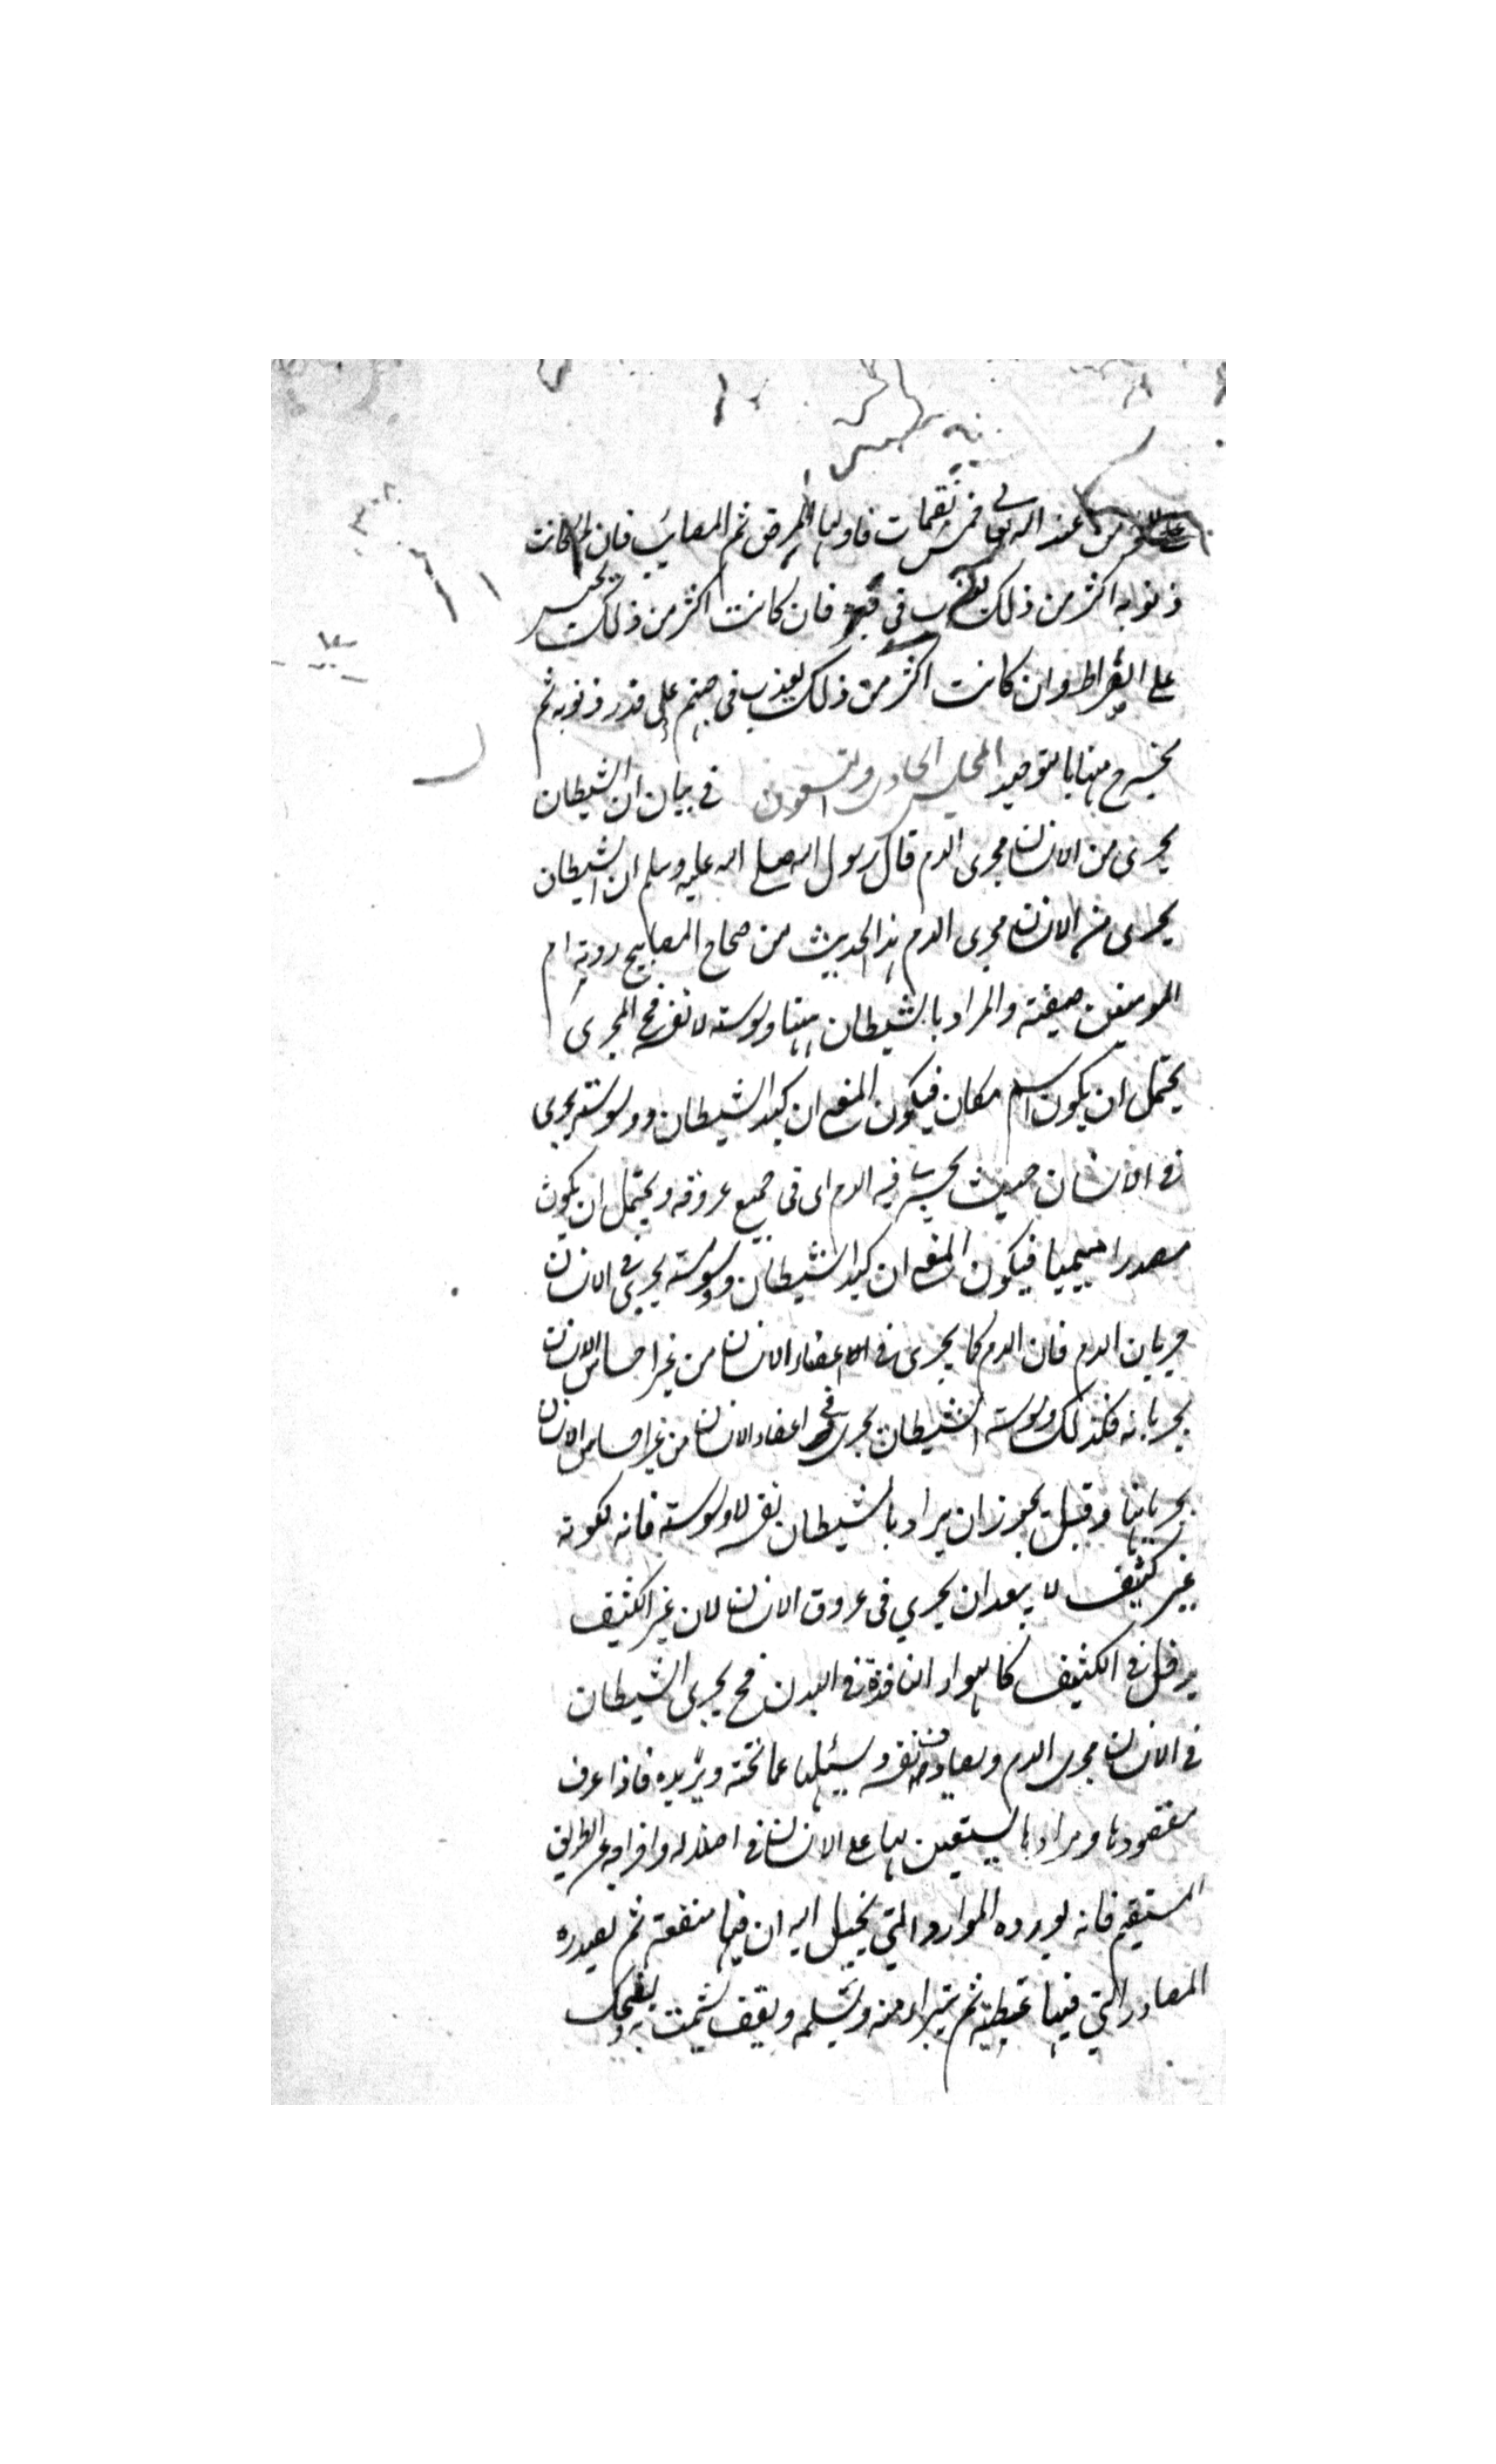 من عند الله تعالى خمس نقمات فاولها المرض ثم المصائب فان كانت
ذنوبه اكثر من ذلك يعذب في قبره فان كانت اكثر من ذلك يحبس
على الصراط وان كانت اكثر من ذلك يعذب في جهنم على قدر ذنوبه ثم
يخرج منها بالتوحيد المجلس الحادى والتسعون في بيان ان الشيطان
يجرى من الانسان مجرى الدم قال رسول الله صلى الله عليه وسلم ان الشيطان
يجرى من الانسان مجرى الدم هذا الحديث من صحاح المصابيح روته ام
المومنين صفية والمراد بالشيطان ههنا وسوسته لا نفسه فح المجرى
يحتمل ان يكون اسم مكان فيكون المعنى ان كيد الشيطان ووسوسته يجرى
في الانسان حيث يجرى فيه الدم اى فى جميع عروقه ويحتمل ان يكون
مصدرا ميميا فيكون المعنى ان كيد الشيطان ووسوسته يجرى في الانسان
جريان الدم فان الدم كما يجرى في اعضاء الانسان من غير احساس الانسان
بجريانه فكذلك وسوسة الشيطان يجرى في اعضاء الانسان من غير احساس الانسان
بجريانها وقيل يجوز ان يراد بالشيطان نفسه لا وسوسته فانه لكونه
غير كثيف لا يبعد ان يجري في عروق الانسان لان غير الكثيف
يدخل في الكثيف كالهواء النافذة في البدن فح يجرى الشيطان
في الانسان مجرى الدم ويصادف نفسه ويسئلها عما تحبه ويزيده فاذا عرف
مقصودها ومرادها يستعين بها على الانسان في اضلاله واخراجه عن الطريق
المستقيم فانه يورده الموارد التي يخيل اليه ان فيها منفعته ثم يصدره
المصادر التي فيها عطبه ثم يتبراء منه ويسلمه ويقف يشمت به ويضحك